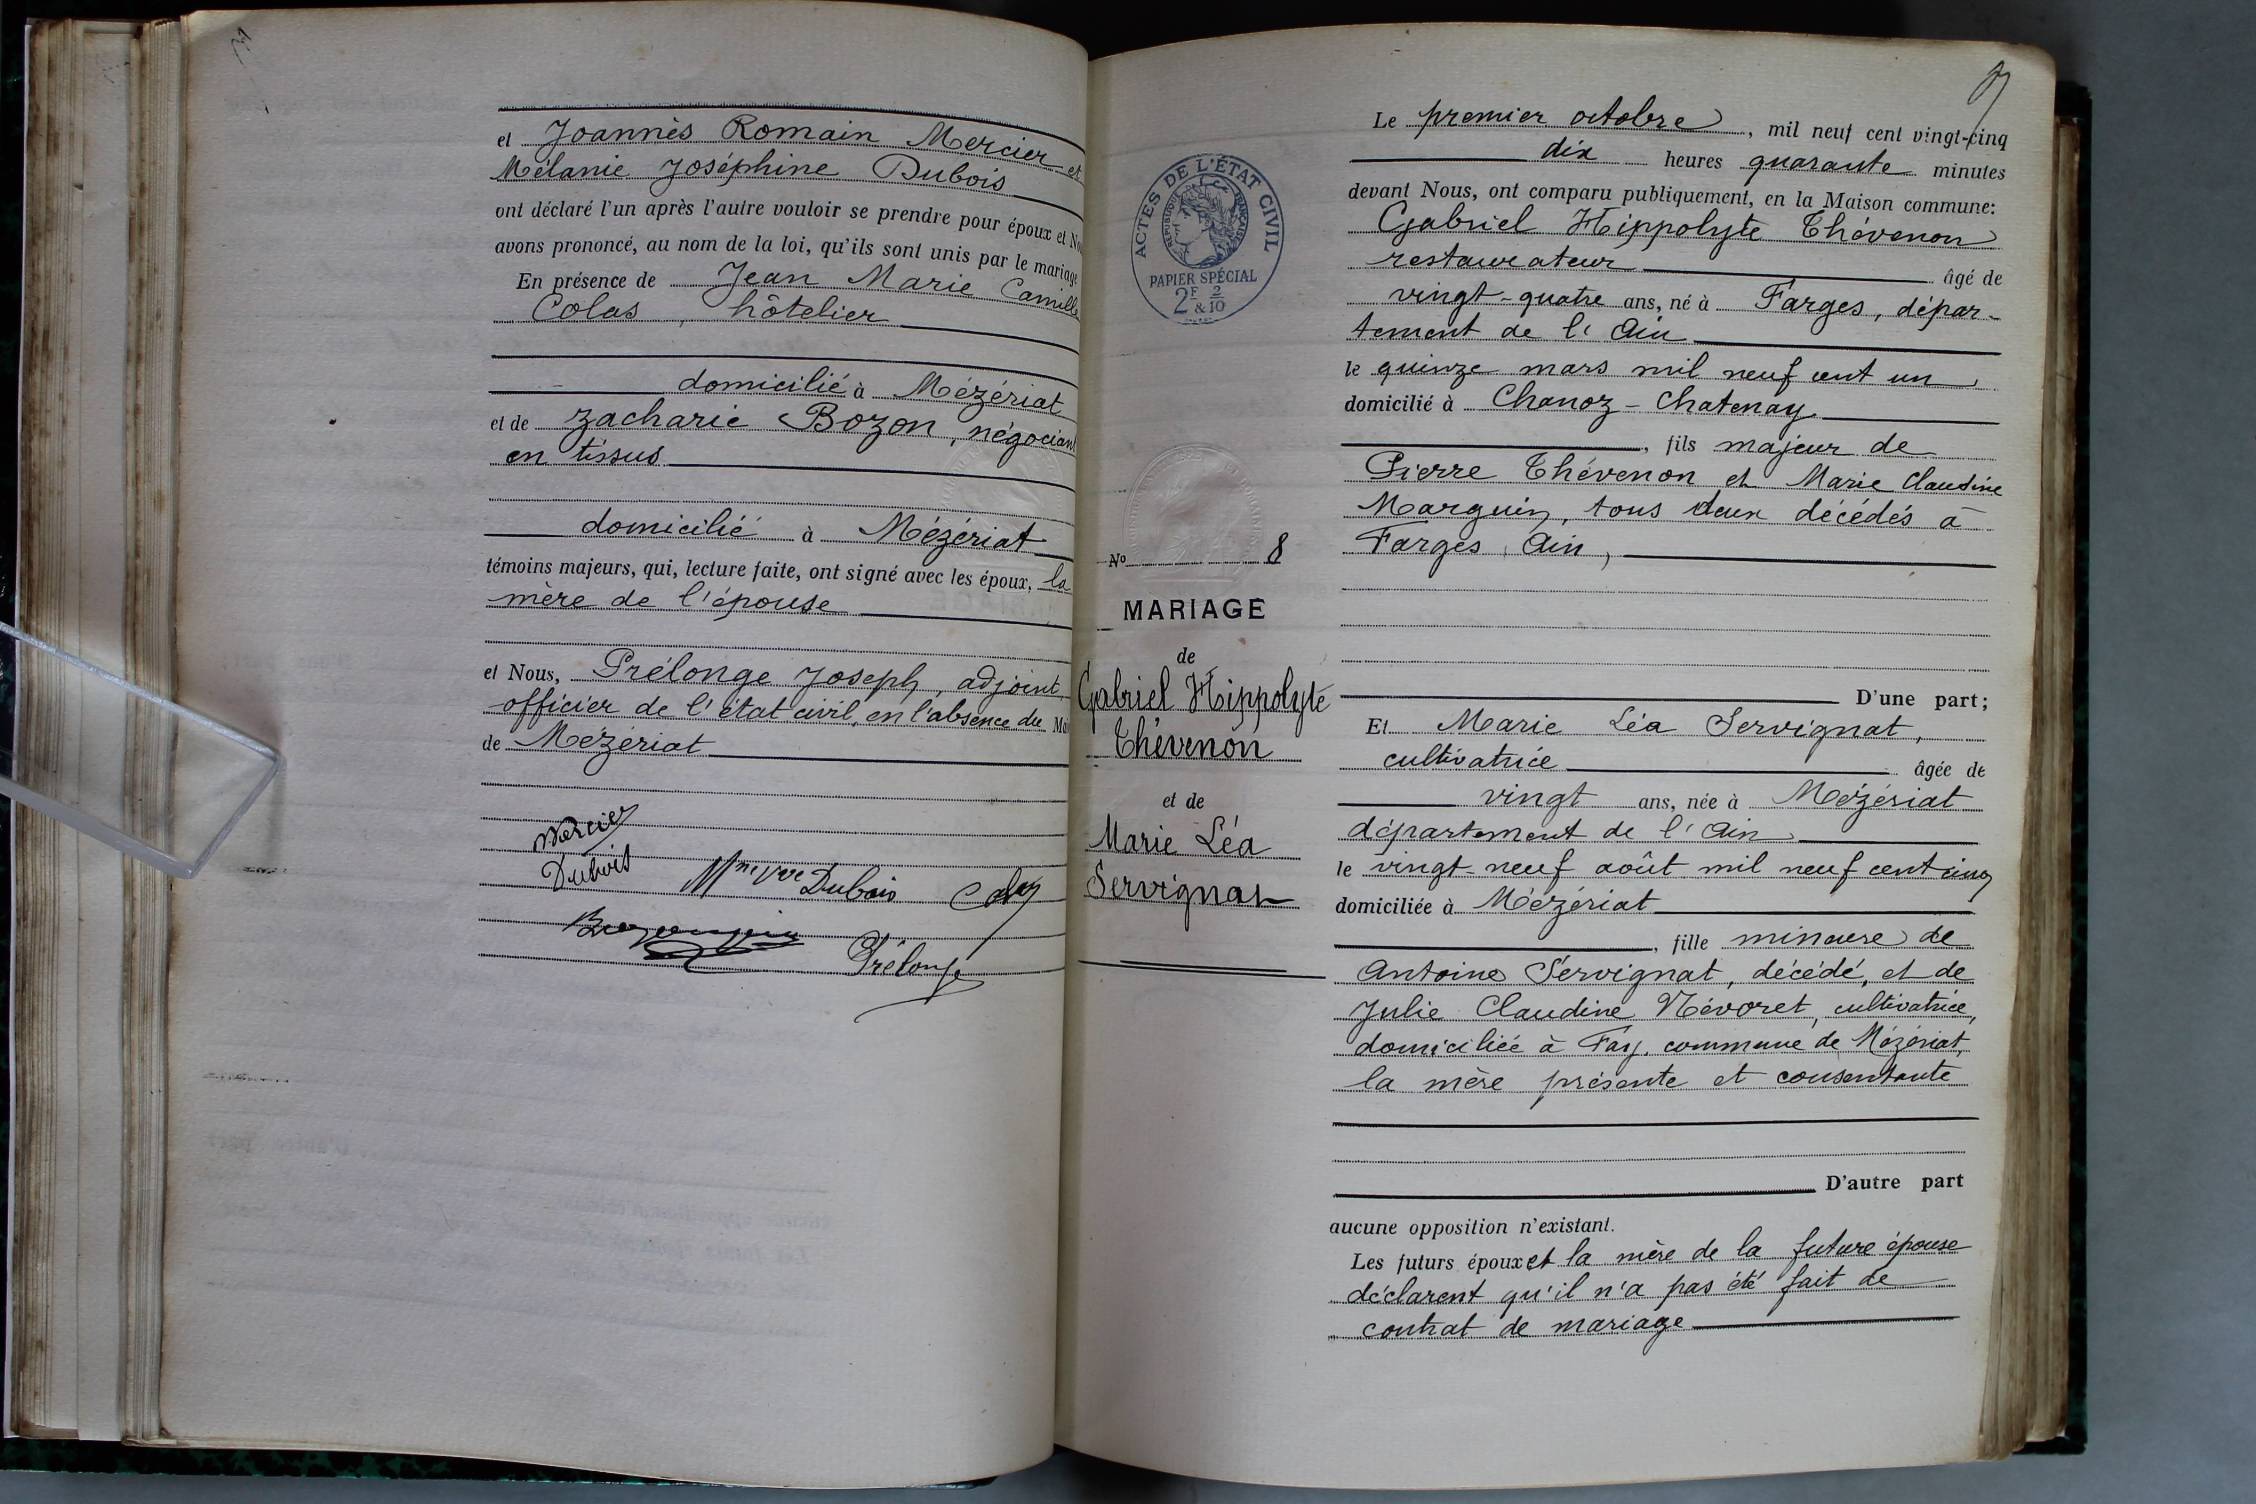 et Joannès Romain Mercier et
Mélanie Joséphine Dubois
ont déclaré l'un après l'autre vouloir se prendre pour époux et No
avons prononcé, au nom de la loi, qu'ils sont unis par le mariage
En présence de Jean Marie Camille
Colas, hôtelier
domicilié à Mézériat
et de Zacharie Bozon, négociant
en tissus
domicilié à Mézériat
témoins majeurs, qui, lecture faite, ont signé avec les époux, la
mère de l'épouse
et Nous, Prélonge Joseph, adjoint,
officier de l'état civil, en l'absence du Mai
de Mézériat
Mercier
Dubois Mme Vve Dubois Colas
Prélonge
ACTES DE L'ÉTAT CIVIL
RÉPUBLIQUE FRANÇAISE
PAPIER SPÉCIAL
2F 2
& 10
No 8
MARIAGE
de
Gabriel Hippolyte
Thévenon
et de
Marie Léa
Servignat
Le premier octobre, mil neuf cent vingt-cinq
dix heures quarante minutes
devant Nous, ont comparu publiquement, en la Maison commune:
Gabriel Hippolyte Thévenon
restaurateur âgé de
vingt-quatre ans, né à Farges, dépar-
tement de l'Ain
le quinze mars mil neuf cent un
domicilié à Chanoz-Chatenay
, fils majeur de
Pierre Thévenon et Marie Claudine
Marguin, tous deux décédés à
Farges, Ain,
D'une part;
Et Marie Léa Servignat,
cultivatrice âgée de
vingt ans, née à Mézériat
département de l'Ain
le vingt-neuf août mil neuf cent cinq
domiciliée à Mézériat
, fille mineure de
Antoine Servignat, décédé, et de
Julie Claudine Névoret, cultivatrice,
domiciliée à Fay, commune de Mézériat,
la mère présente et consentante
D'autre part
aucune opposition n'existant.
Les futurs époux et la mère de la future épouse
déclarent qu'il n'a pas été fait de
contrat de mariage